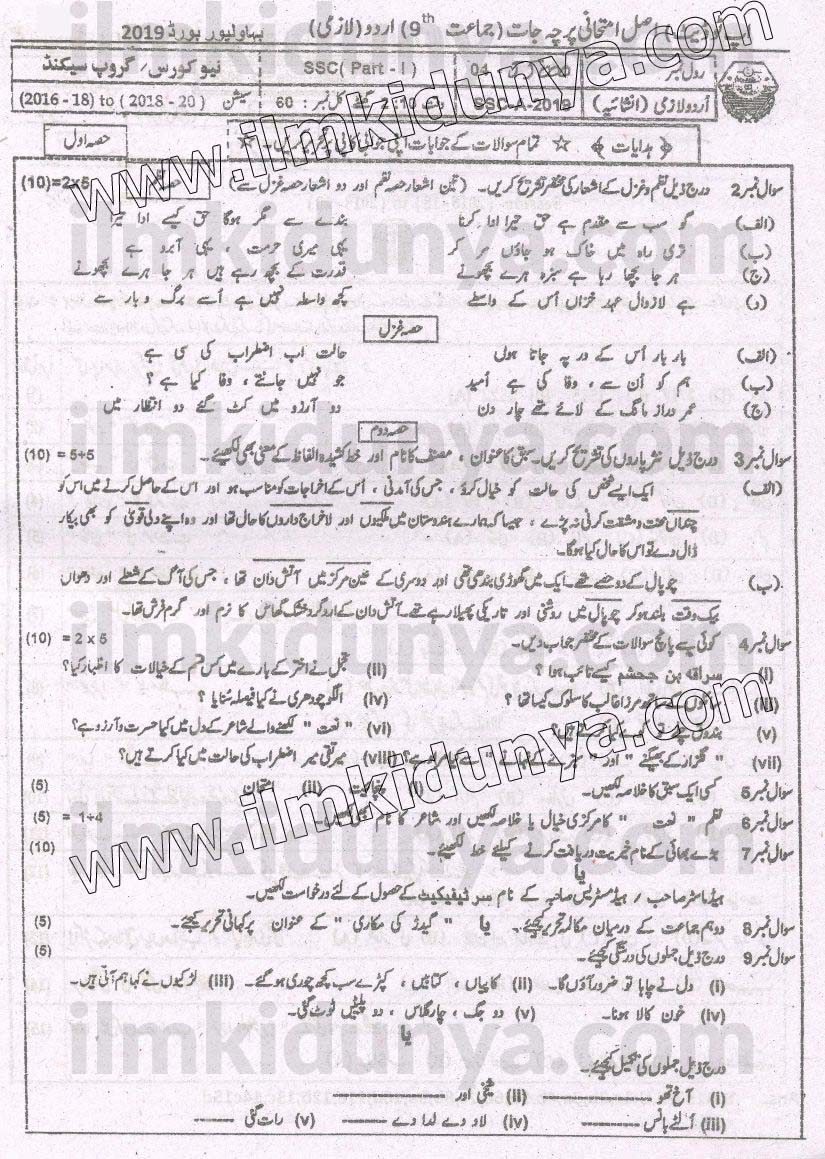 اپ ٹو ڈیٹ اصل امتحانی پرچہ جات (جماعت 9th) اردو (لازمی) بہاولپور بورڈ 2019
رول نمبر SSC( Part - I ) نیو کورس / گروپ سیکنڈ
اُردو لازمی (انشائیہ) SSC-A-2019 وقت 2:10 گھنٹے کل نمبر : 60 سیشن (2016 - 18) to ( 2018 - 20 )
﴿ ہدایات ﴾ ☆ تمام سوالات کے جوابات اپنی جوابی کاپی پر تحریر کریں۔ ☆ حصہ اول
سوال نمبر 2 درج ذیل نظم و غزل کے اشعار کی مختصر تشریح کریں۔ (تین اشعار حصہ نظم اور دو اشعار حصہ غزل سے) (10)=2x5
حصہ نظم
(الف) گو سب سے مقدم ہے حق تیرا ادا کرنا بندے سے مگر ہوگا حق کیسے ادا تیرا
(ب) تری راہ میں خاک ہو جاؤں مر کر یہی میری حرمت ، یہی آبرو ہے
(ج) ہر جا بچھا رہا ہے سبزہ ہرے بچھونے قدرت کے بچھ رہے ہیں ہر جا ہرے بچھونے
(د) ہے لازوال عہد خزاں اُس کے واسطے کچھ واسطہ نہیں ہے اُسے برگ و بار سے
حصہ غزل
(الف) بار بار اُس کے در پہ جاتا ہوں حالت اب اضطراب کی سی ہے
(ب) ہم کو اُن سے ، وفا کی ہے اُمید جو نہیں جانتے ، وفا کیا ہے ؟
(ج) عمر دراز مانگ کے لائے تھے چار دن دو آرزو میں کٹ گئے دو انتظار میں
حصہ دوم
سوال نمبر 3 درج ذیل نثر پاروں کی تشریح کریں۔ سبق کا عنوان ، مصنف کا نام اور خط کشیدہ الفاظ کے معنی بھی لکھیئے۔ (10) = 5+5
(الف) ایک ایسے شخص کی حالت کو خیال کرو ، جس کی آمدنی ، اُس کے اخراجات کو مناسب ہو اور اس کے حاصل کرنے میں اس کو
چنداں محنت و مشقت کرنی نہ پڑے ، جیسا کہ ہمارے ہندوستان میں ملکیوں اور لاخراج داروں کا حال تھا اور وہ اپنے دلی قویٰ کو بھی بیکار
ڈال دے تو اس کا حال کیا ہوگا۔
(ب) چوپال کے دو حصے تھے۔ ایک میں گھوڑی بندھی تھی اور دوسری کے عین مرکز میں آتش دان تھا ، جس کی آگ کے شعلے اور دھواں
بیک وقت بلند ہو کر چوپال میں روشنی اور تاریکی پھیلا رہے تھے۔ آتش دان کے ارد گرد خشک گھاس کا نرم اور گرم فرش تھا۔
سوال نمبر 4 کوئی سے پانچ سوالات کے مختصر جواب دیں۔ (10) = 2 x 5
(i) سراقہ بن جعشم کیسے تائب ہوا ؟ (ii) تجمل نے اختر کے بارے میں کس قسم کے خیالات کا اظہار کیا؟
(iii) مرزا غالب کا سلوک کیسا تھا ؟ (iv) الگو چودھری نے کیا فیصلہ سُنایا ؟
(v) (vi) " نعت " لکھنے والے شاعر کے دل میں کیا حسرت و آرزو ہے؟
(vii) " گلزار کے بھیگنے " اور " (viii) میر تقی میر اضطراب کی حالت میں کیا کرتے ہیں؟
سوال نمبر 5 کسی ایک سبق کا خلاصہ لکھیں۔ (i) پنچایت (ii) امتحان (5)
سوال نمبر 6 نظم " نعت " کا مرکزی خیال یا خلاصہ لکھیں اور شاعر کا نام بھی لکھیں۔ (5) = 1+4
سوال نمبر 7 بڑے بھائی کے نام خیریت دریافت کرنے کیلئے خط لکھیئے۔ (10)
یا
ہیڈ ماسٹر صاحب / ہیڈ مسٹریس صاحبہ کے نام سرٹیفیکیٹ کے حصول کے لئے درخواست لکھیں۔
سوال نمبر 8 دو ہم جماعت کے درمیان مکالمہ تحریر کیجئے۔ یا " گیدڑ کی مکاری " کے عنوان پر کہانی تحریر کیجئے۔ (5)
سوال نمبر 9 درج ذیل جملوں کی درستگی کیجئے۔ (5)
(i) دل نے چاہا تو ضرور آؤں گا۔ (ii) کاپیاں ، کتابیں ، کپڑے سب کچھ چوری ہو گئے۔ (iii) لڑکیوں نے کہا ہم آتی ہیں۔
(iv) خون کالا ہونا۔ (v) دو جگ ، چار گلاس ، دو پلیٹیں ٹوٹ گئی۔
یا
درج ذیل جملوں کی تکمیل کیجئے۔
(i) آخ تھو ------- (ii) شیخی اور -------
(iii) اُلٹے بانس ------- (iv) لاد دے لدا دے ------- (v) رات گئی -------
www.ilmkidunya.com
www.ilmkidunya.com
ilmkidunya.com
ilmkidunya.com
ilmkidunya.com
ilmkidunya.com
ilmkidunya.com